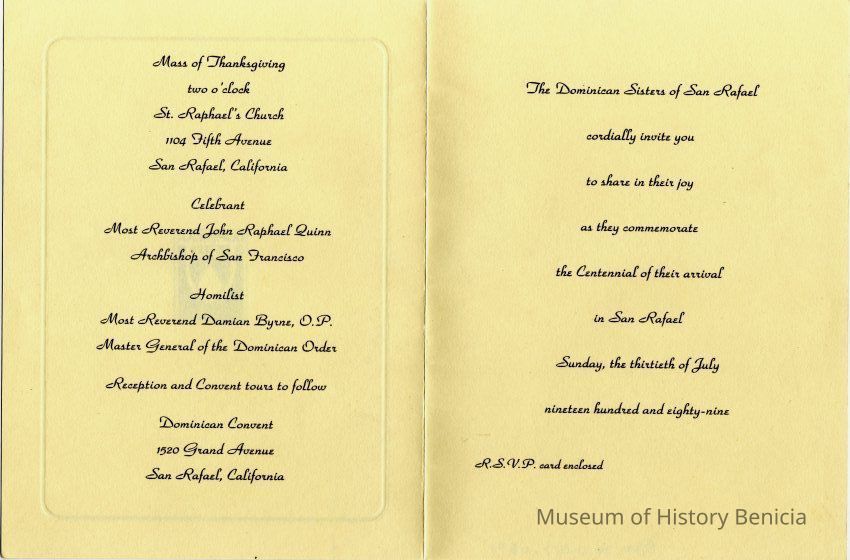 Mass of Thanksgiving
two o'clock
St. Raphael's Church
1104 Fifth Avenue
San Rafael, California
Celebrant
Most Reverend John Raphael Quinn
Archbishop of San Francisco
Homilist
Most Reverend Damian Byrne, O.P.
Master General of the Dominican Order
Reception and Convent tours to follow
Dominican Convent
1520 Grand Avenue
San Rafael, California
The Dominican Sisters of San Rafael
cordially invite you
to share in their joy
as they commemorate
the Centennial of their arrival
in San Rafael
Sunday, the thirtieth of July
nineteen hundred and eighty-nine
R.S.V.P. card enclosed
Museum of History Benicia